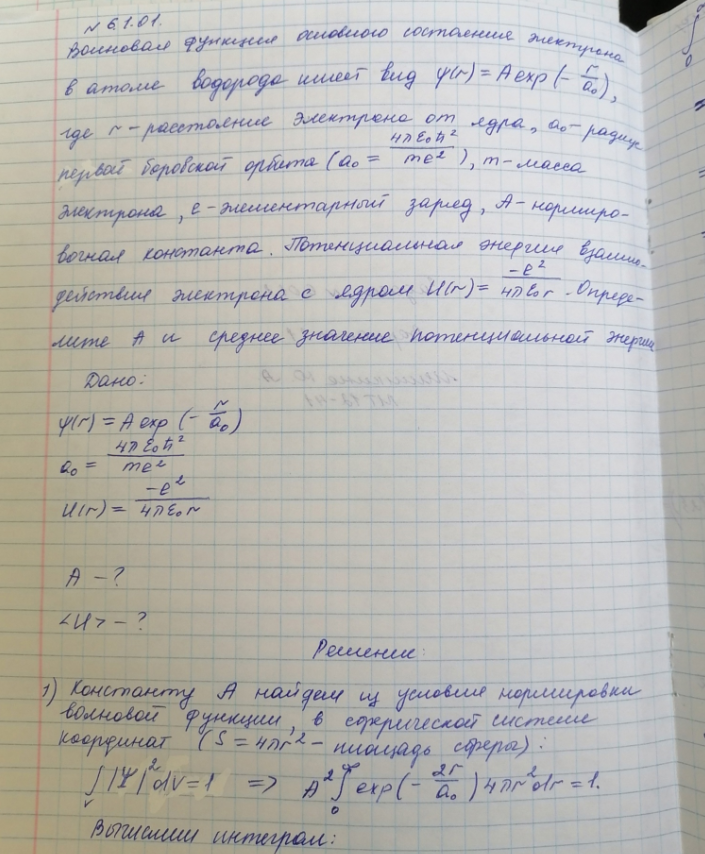 № 6.1.01.
Волновая функция основного состояния электрона
в атоме водорода имеет вид ψ(r) = A exp(- r/a₀),
где r - расстояние электрона от ядра, a₀ - радиус
первой боровской орбиты (a₀ = 4πε₀ħ²/me²), m - масса
электрона, e - элементарный заряд, A - нормиро-
вочная константа. Потенциальная энергия взаимо-
действия электрона с ядром U(r) = -e²/4πε₀r. Опреде-
лите A и среднее значение потенциальной энергии
Дано:
ψ(r) = A exp(- r/a₀)
a₀ = 4πε₀ħ²/me²
U(r) = -e²/4πε₀r
A - ?
<U> - ?
Решение:
1) Константу A найдем из условия нормировки
волновой функции, в сферической системе
координат (S = 4πr² - площадь сферы):
∫_v |Ψ|² dV = 1 => A² ∫₀^∞ exp(- 2r/a₀) 4πr² dr = 1.
Вычислим интеграл: